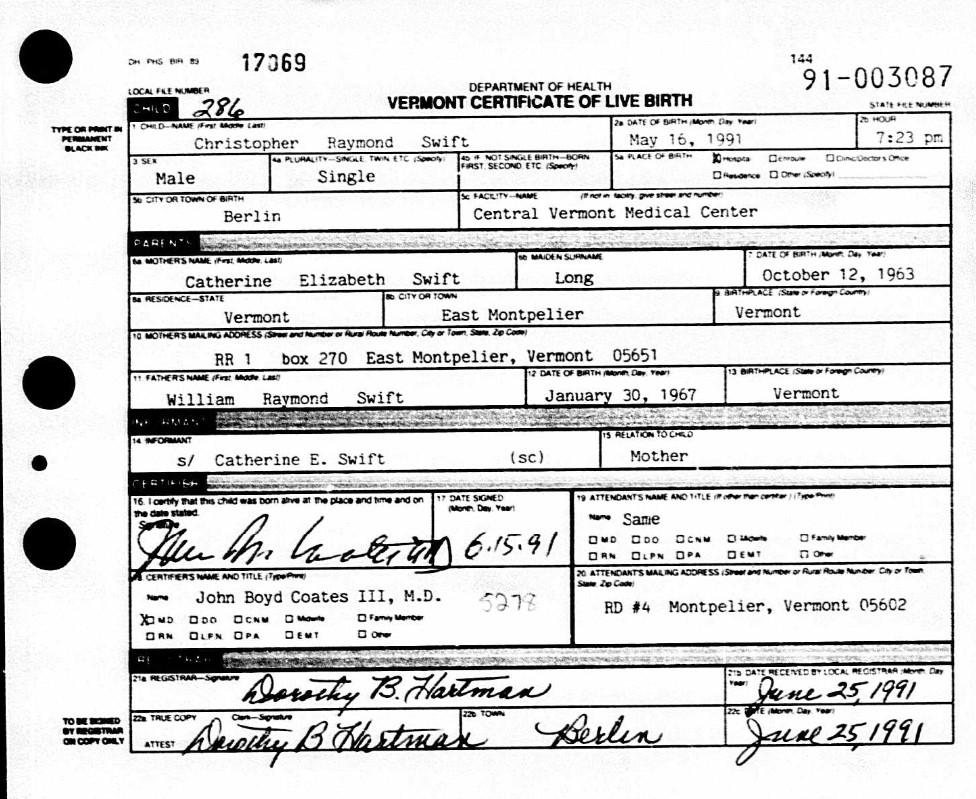 DH PHS BIR 89 17069 144
91-003087
LOCAL FILE NUMBER DEPARTMENT OF HEALTH
CHILD 286 VERMONT CERTIFICATE OF LIVE BIRTH STATE FILE NUMBER
TYPE OR PRINT IN PERMANENT BLACK INK
1 CHILD—NAME (First, Middle, Last) 2a DATE OF BIRTH (Month, Day, Year) 2b HOUR
Christopher Raymond Swift May 16, 1991 7:23 pm
3 SEX 4a PLURALITY—SINGLE, TWIN, ETC. (Specify) 4b IF NOT SINGLE BIRTH—BORN FIRST, SECOND, ETC. (Specify) 5a PLACE OF BIRTH X Hospital Enroute Clinic/Doctor's Office
Male Single Residence Other (Specify)
5b CITY OR TOWN OF BIRTH 5c FACILITY—NAME (If not in facility, give street and number)
Berlin Central Vermont Medical Center
PARENTS
6a MOTHER'S NAME (First, Middle, Last) 6b MAIDEN SURNAME 7 DATE OF BIRTH (Month, Day, Year)
Catherine Elizabeth Swift Long October 12, 1963
8a RESIDENCE—STATE 8b CITY OR TOWN 9 BIRTHPLACE (State or Foreign Country)
Vermont East Montpelier Vermont
10 MOTHER'S MAILING ADDRESS (Street and Number or Rural Route Number, City or Town, State, Zip Code)
RR 1 box 270 East Montpelier, Vermont 05651
11 FATHER'S NAME (First, Middle, Last) 12 DATE OF BIRTH (Month, Day, Year) 13 BIRTHPLACE (State or Foreign Country)
William Raymond Swift January 30, 1967 Vermont
INFORMANT
14 INFORMANT 15 RELATION TO CHILD
s/ Catherine E. Swift (sc) Mother
CERTIFIER
16. I certify that this child was born alive at the place and time and on the date stated.
Signature
17 DATE SIGNED (Month, Day, Year)
6.15.91
19 ATTENDANT'S NAME AND TITLE (If other than certifier) (Type/Print)
Name Same
MD DO CNM Midwife Family Member
RN LPN PA EMT Other
18 CERTIFIER'S NAME AND TITLE (Type/Print)
Name John Boyd Coates III, M.D. 5278
X MD DO CNM Midwife Family Member
RN LPN PA EMT Other
20 ATTENDANT'S MAILING ADDRESS (Street and Number or Rural Route Number, City or Town, State, Zip Code)
RD #4 Montpelier, Vermont 05602
REGISTRAR
21a REGISTRAR—Signature 21b DATE RECEIVED BY LOCAL REGISTRAR (Month, Day, Year)
Dorothy B. Hartman June 25, 1991
TO BE SIGNED BY REGISTRAR ON COPY ONLY
22a TRUE COPY Clerk—Signature 22b TOWN 22c DATE (Month, Day, Year)
ATTEST Dorothy B Hartman Berlin June 25, 1991